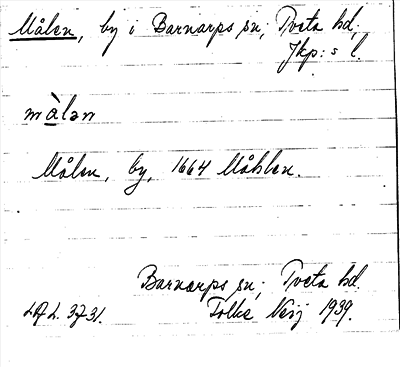 Målen, by i Barnarps sn, Tveta hd,
Jkp:s l.
màlən
Målen, by, 1664 Måhlen.
Barnarps sn; Tveta hd.
Folke Neij 1939.